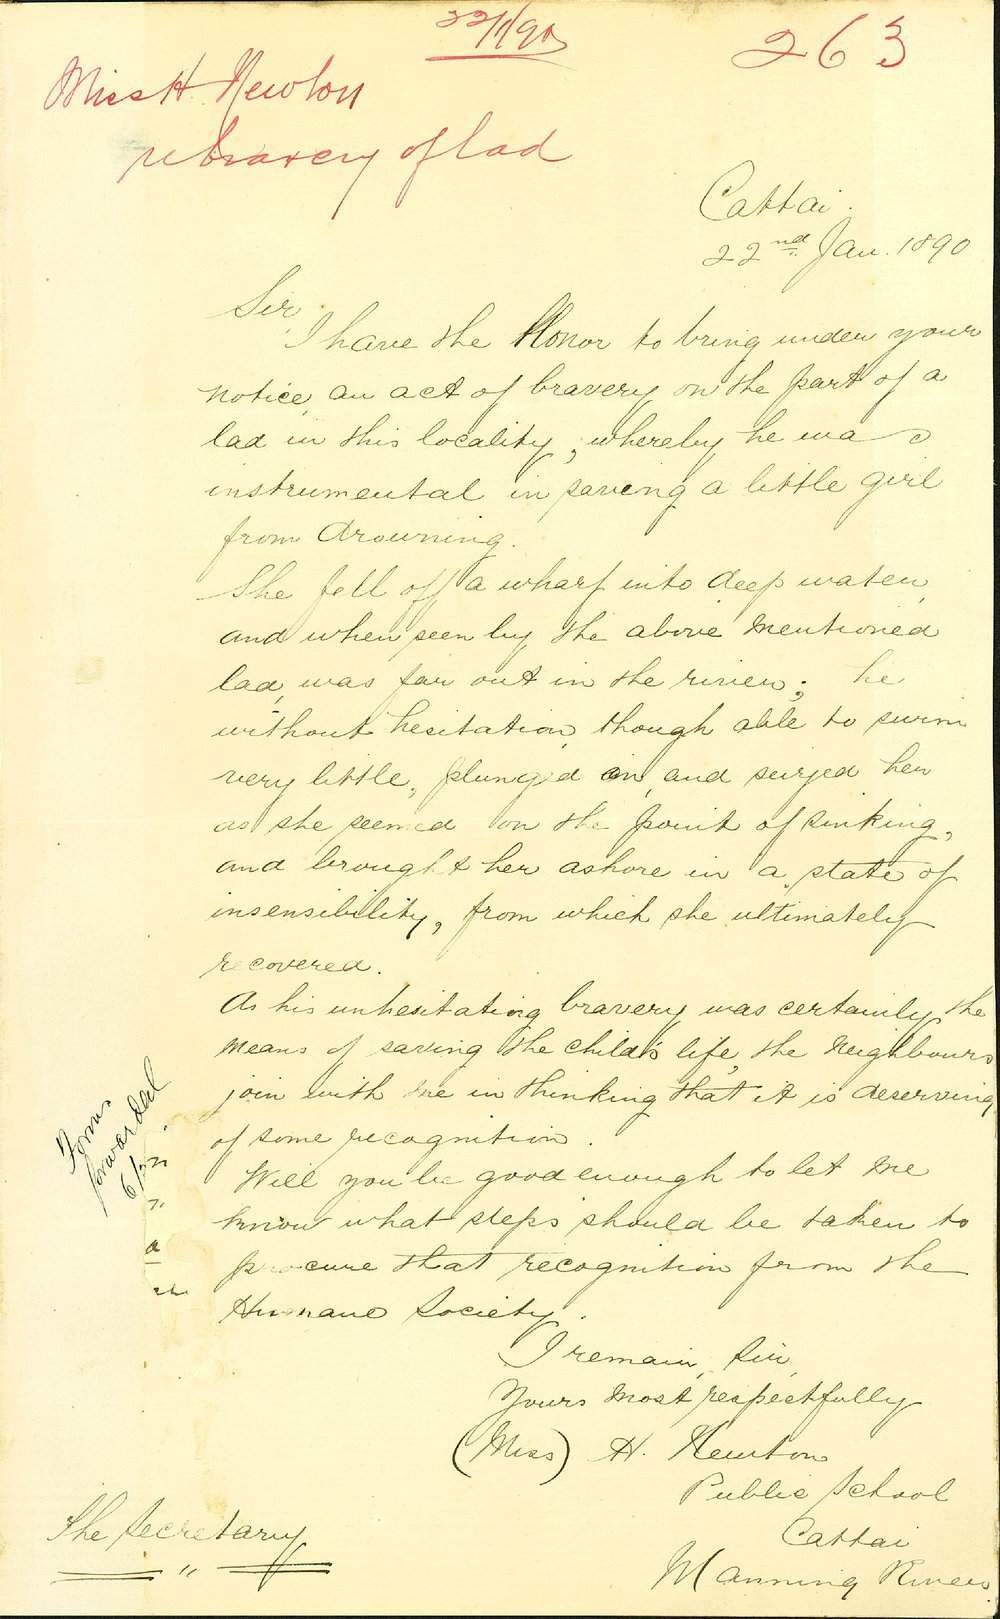 22/1/90
263
Miss H. Newton
re bravery of lad
Cattai.
22nd. Jan. 1890
Sir,
I have the Honor to bring under your
notice, an act of bravery on the part of a
lad in this locality, whereby he was
instrumental in saving a little girl
from drowning.
She fell off a wharf into deep water,
and when seen by the above mentioned
lad, was far out in the river; he
without hesitation, though able to swim
very little, plunged in, and seized her
as she seemed on the point of sinking,
and brought her ashore in a state of
insensibility, from which she ultimately
recovered.
As his unhesitating bravery was certainly the
means of saving the child's life, the neighbours
join with me in thinking that it is deserving
of some recognition.
Will you be good enough to let me
know what steps should be taken to
procure that recognition from the
Humane Society.
I remain, Sir,
Yours most respectfully
(Miss) H. Newton
Public School
Cattai
Manning River
The Secretary
"
Forms
forwarded
6/3